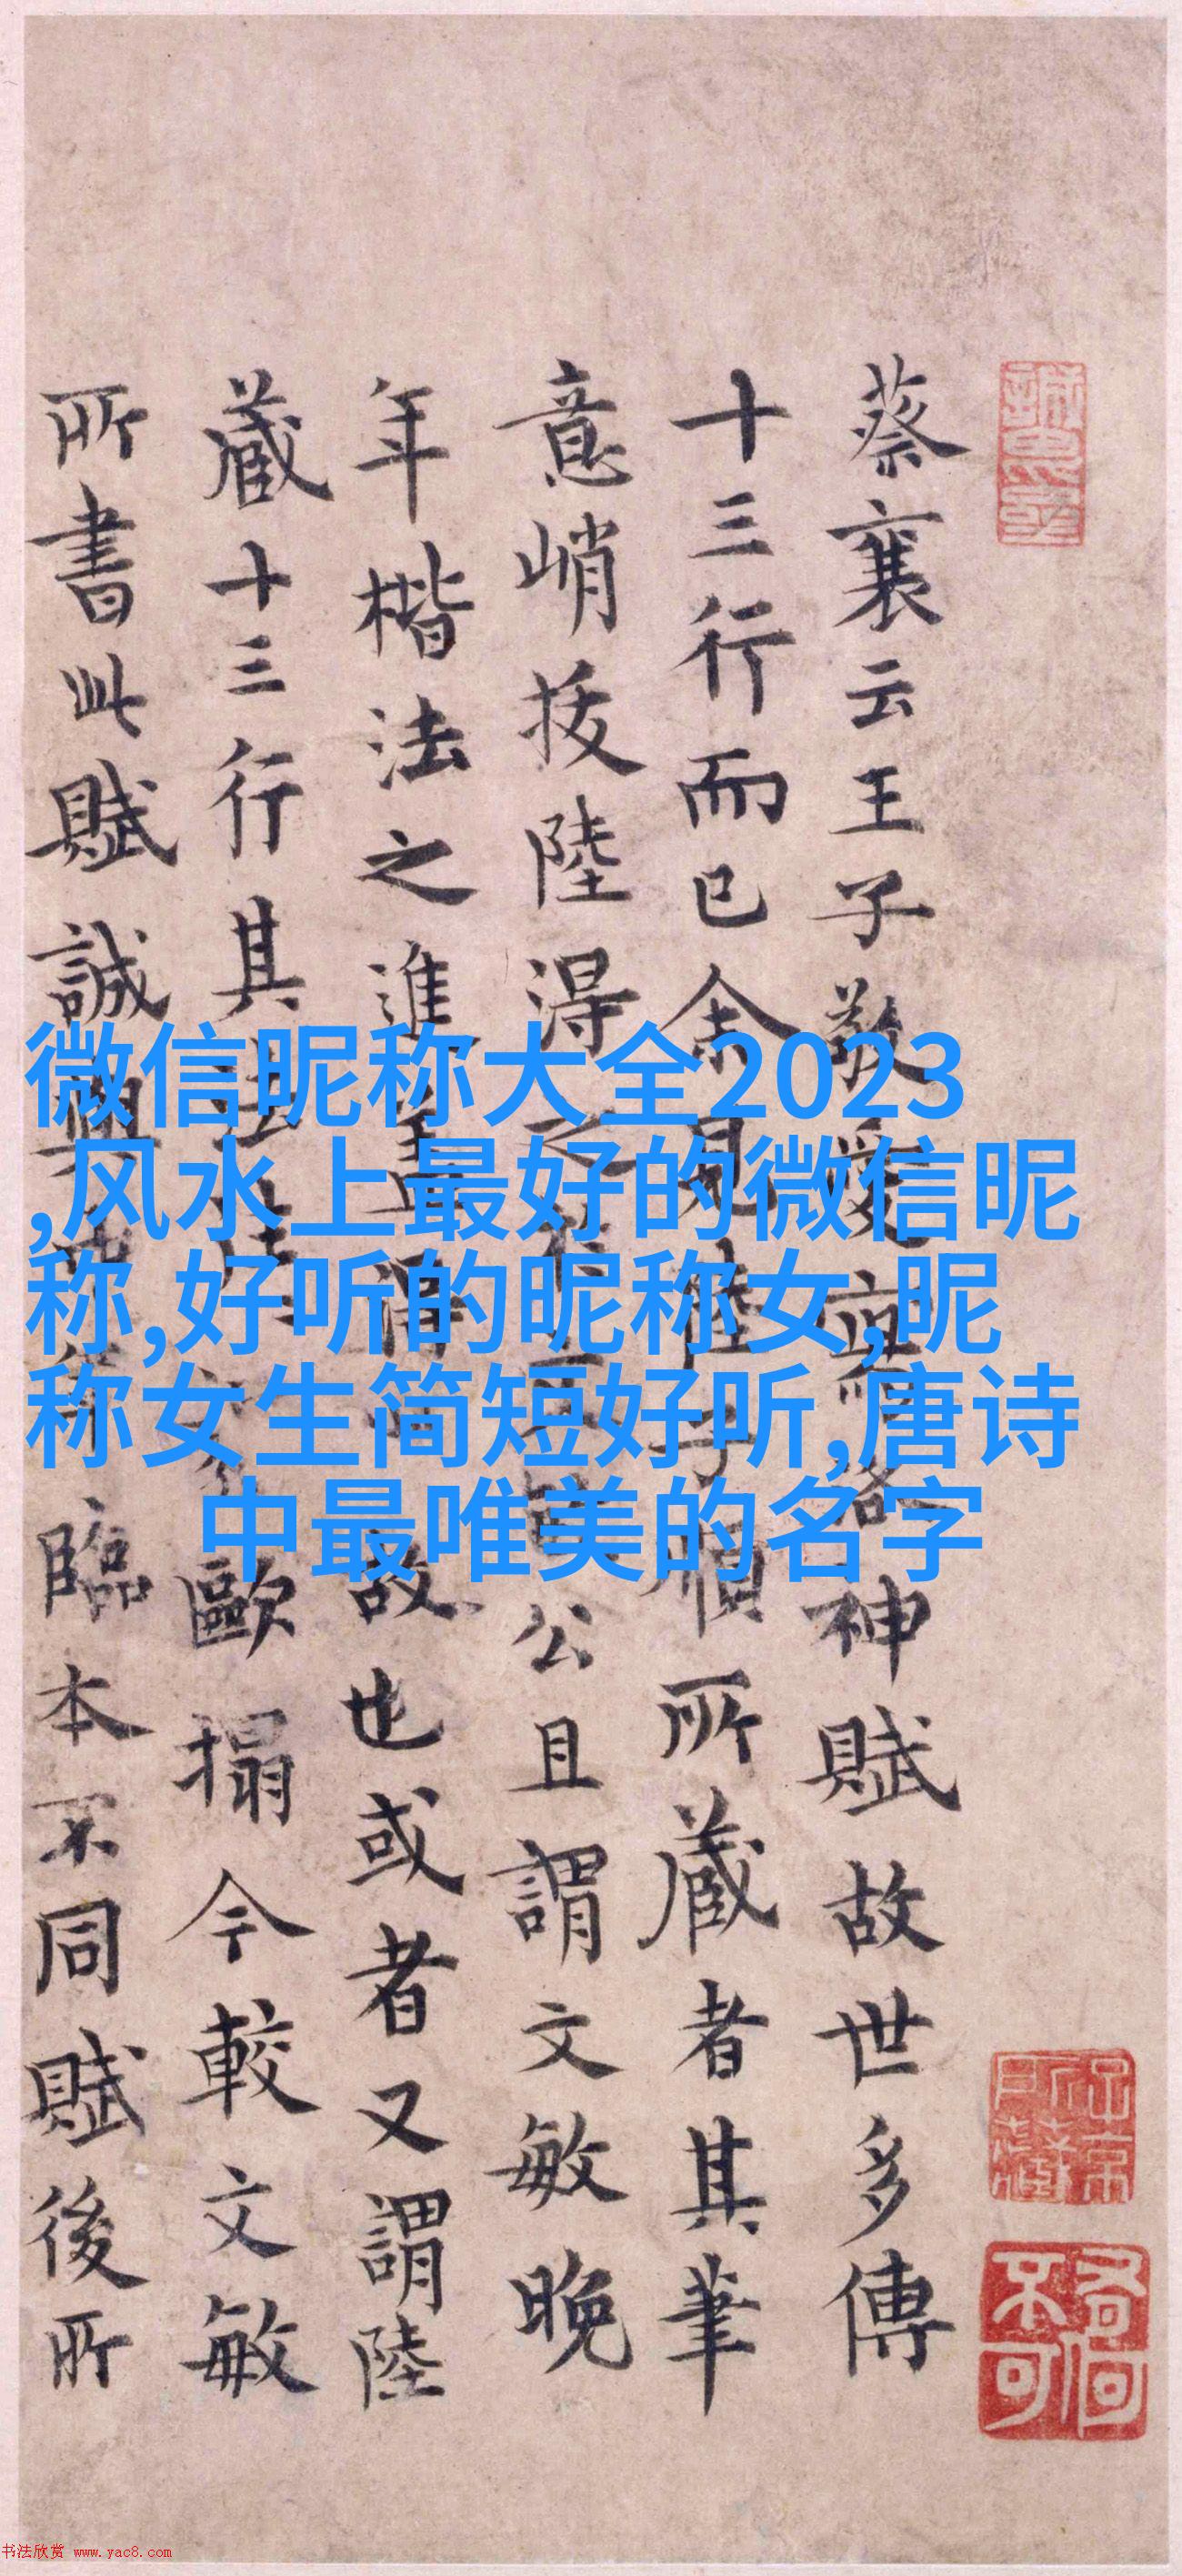 微信昵称大全2023
,风水上最好的微信昵
称,好听的昵称女,昵
称女生简短好听,唐诗
中最唯美的名字
蔡襄云王子敬愛寫洛神賦故世多傳
十三行而已余見陸子順所蔵者其筆
意峭拔陸得之公且謂文敏晚
年楷法之進故也或者又謂陸
蔵十三行其歐搨今較文敏
所書此賦誠臨本不同賦後所
书法欣赏 www.yac8.com